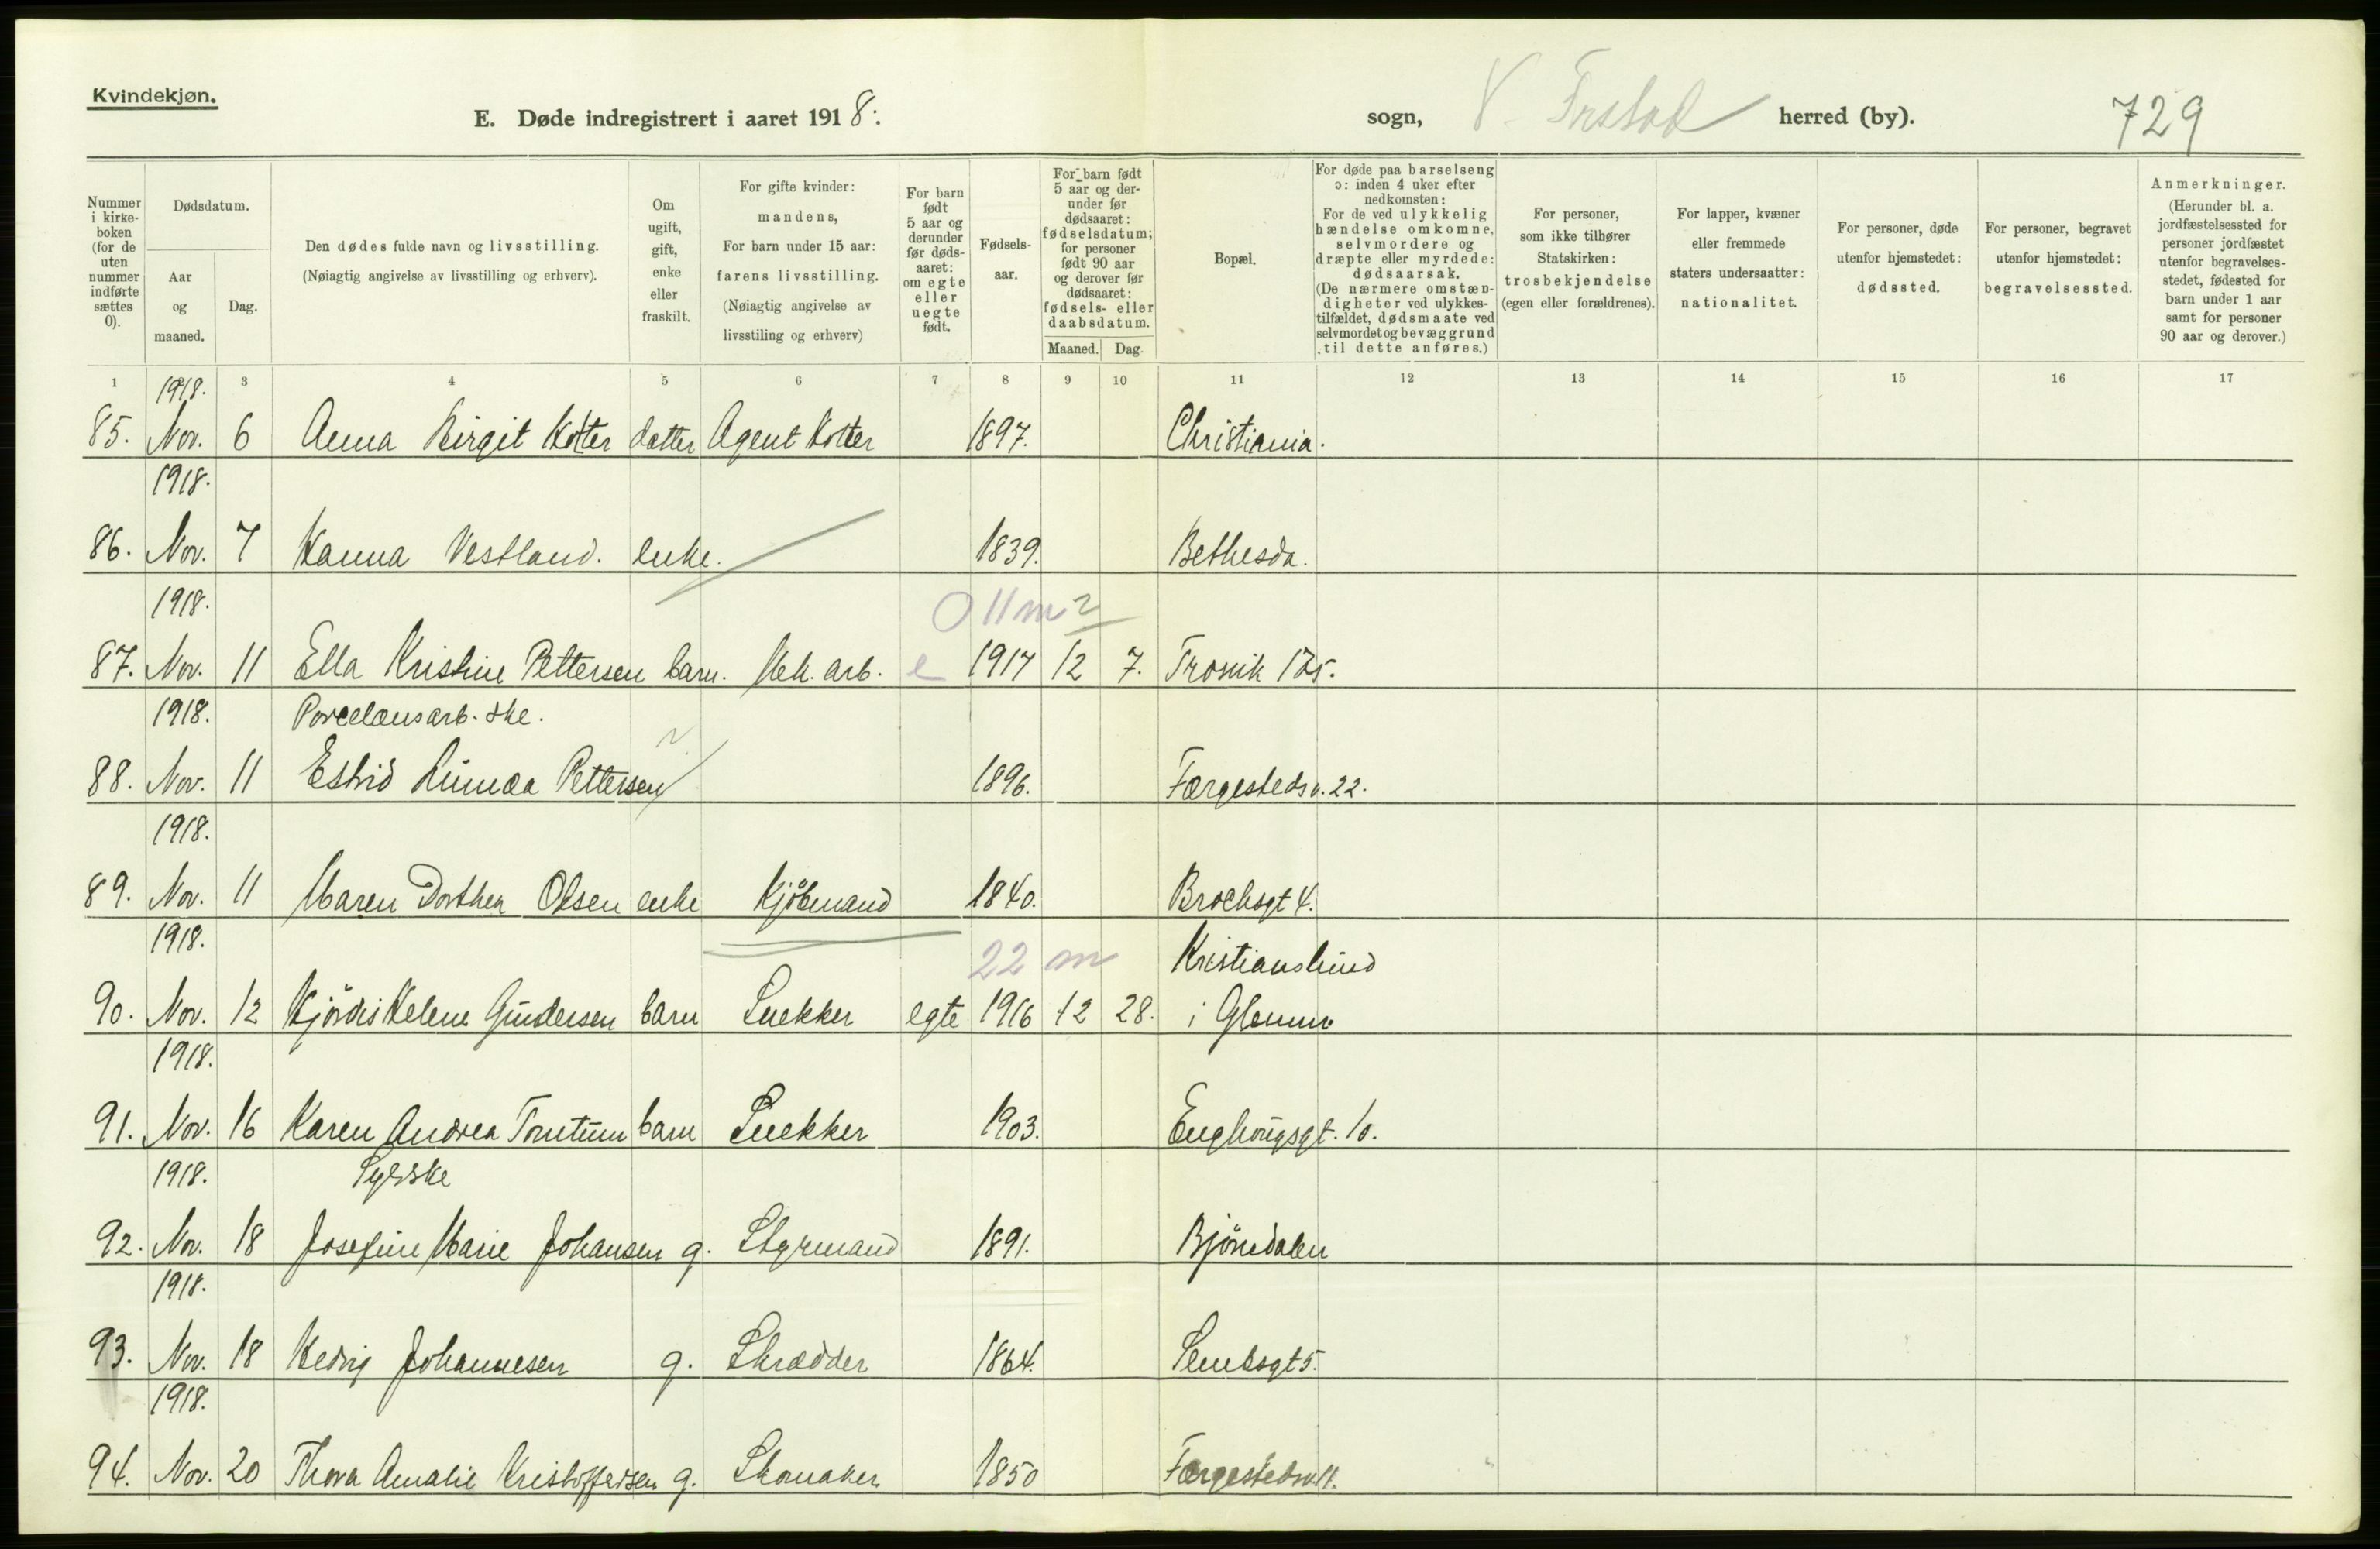 Kvindekjøn.
E. Døde indregistrert i aaret 1918.
sogn, V. Frstad herred (by).
729
Nummer i kirkeboken (for de uten nummer indførte sættes 0).
Dødsdatum.
Aar og maaned.
Dag.
Den dødes fulde navn og livsstilling.
(Nøiagtig angivelse av livsstilling og erhverv).
Om ugift, gift, enke eller fraskilt.
For gifte kvinder: mandens,
For barn under 15 aar: farens livsstilling.
(Nøiagtig angivelse av livsstiling og erhverv)
For barn født 5 aar og derunder før dødsaaret: om egte eller uegte født.
Fødselsaar.
For barn født 5 aar og derunder før dødsaaret: fødselsdatum; for personer født 90 aar og derover før dødsaaret: fødsels- eller daabsdatum.
Maaned. Dag.
Bopæl.
For døde paa barselseng ɔ: inden 4 uker efter nedkomsten:
For de ved ulykkelig hændelse omkomne, selvmordere og dræpte eller myrdede: dødsaarsak.
(De nærmere omstændigheter ved ulykkestilfældet, dødsmaate ved selvmordet og bevæggrund til dette anføres.)
For personer, som ikke tilhører Statskirken: trosbekjendelse (egen eller forældrenes).
For lapper, kvæner eller fremmede staters undersaatter: nationalitet.
For personer, døde utenfor hjemstedet: dødssted.
For personer, begravet utenfor hjemstedet: begravelsessted.
Anmerkninger.
(Herunder bl. a. jordfæstelsessted for personer jordfæstet utenfor begravelsesstedet, fødested for barn under 1 aar samt for personer 90 aar og derover.)
1 3 4 5 6 7 8 9 10 11 12 13 14 15 16 17
1918.
85. Nov. 6 Anna Birgit Kotter datter Agent Kotter 1897. Christiania.
1918.
86. Nov. 7 Hanna Vestland. enke. 1839. Bethesda.
1918. 0 11 m 2
87. Nov. 11 Ella Kristine Pettersen barn. Mek. arb. e 1917 12 7. Trosvik 125.
1918. Porcelænsarb.ske.
88. Nov. 11 Estrid Lunda Pettersen 1896. Færgestedsv. 22.
1918.
89. Nov. 11 Maren Dorthea Olsen enke Kjøbmand 1840. Brochsgt 4.
1918. 22 m Kristianslund
90. Nov. 12 Hjørdis Helene Gundersen barn Snekker egte 1916 12 28. i Glemmr
1918.
91. Nov. 16 Karen Andrea Tomtum barn Snekker 1903. Enghaugsgt. 10.
1918. Syerske
92. Nov. 18 Josefine Marie Johansen g. Styrmand 1891. Bjørndalen
1918.
93. Nov. 18 Hedvig Johannesen g. Skrædder 1864. Sembsgt 5.
1918.
94. Nov. 20 Thora Amalie Kristoffersen g. Skomaker 1850 Færgestedsv. 11.